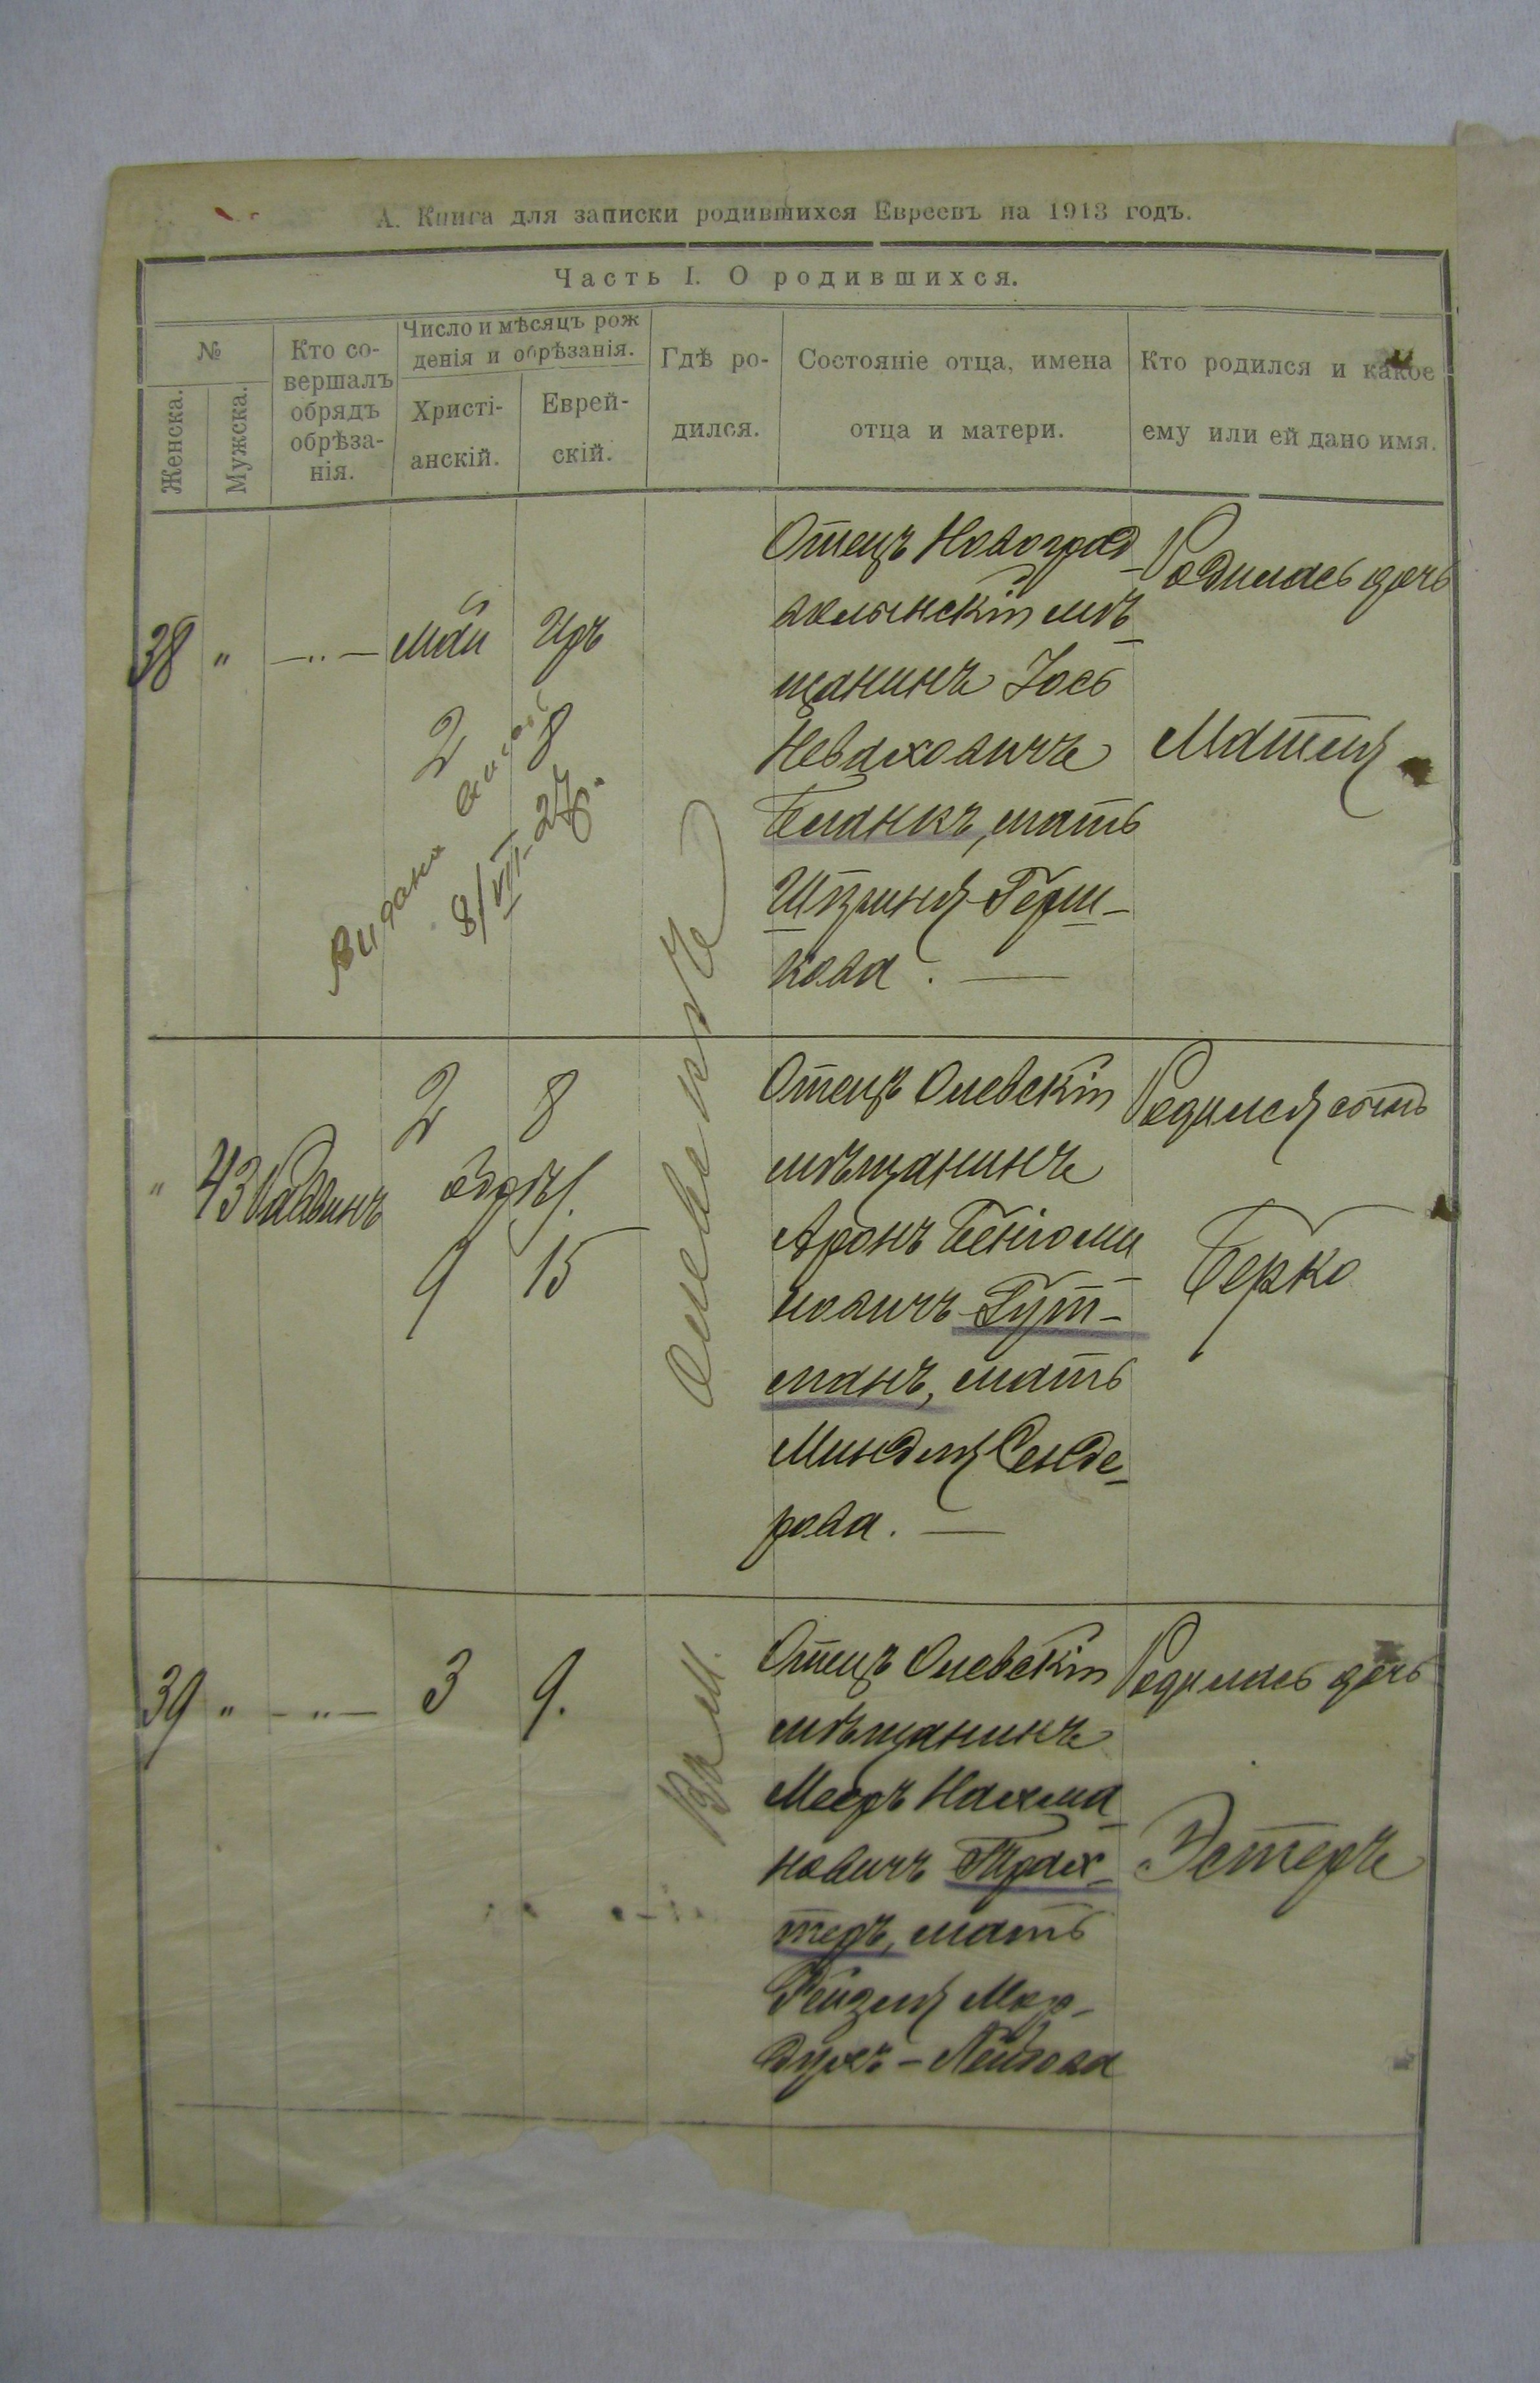 А. Книга для записки родившихся Евреевъ на 1913 годъ.
Часть I. О родившихся.
№
Женска.
Мужска.
Кто со-
вершалъ
обрядъ
обрѣза-
нія.
Число и мѣсяцъ рож
денія и обрѣзанія.
Христі-
анскій.
Еврей-
скій.
Гдѣ ро-
дился.
Состояніе отца, имена
отца и матери.
Кто родился и какое
ему или ей дано имя.
38 " —..— май Иръ
2 8
Видана
8/VIII-27р.
Отецъ Новоград
волынскій мѣ-
щанинъ Іось
Неваховичъ
Бланкъ, мать
Герш-
кова. —
Родилась дочь
Матля
" 43 Раввинъ
2 8
обрѣз.
9 15
Отецъ Олевскій
мѣщанинъ
Аронъ Беніоми
новичъ Гут-
манъ, мать
Миндля Сенде-
рова. —
Родился сынъ
Берко
Въ м. Олевскѣ
39 " —..— 3 9.
Отецъ Олевскій
мѣщанинъ
Мееръ Нахма-
новичъ Трах-
теръ, мать
Рейзля Мор-
духъ-Лейбова
Родилась дочь
Эстеръ